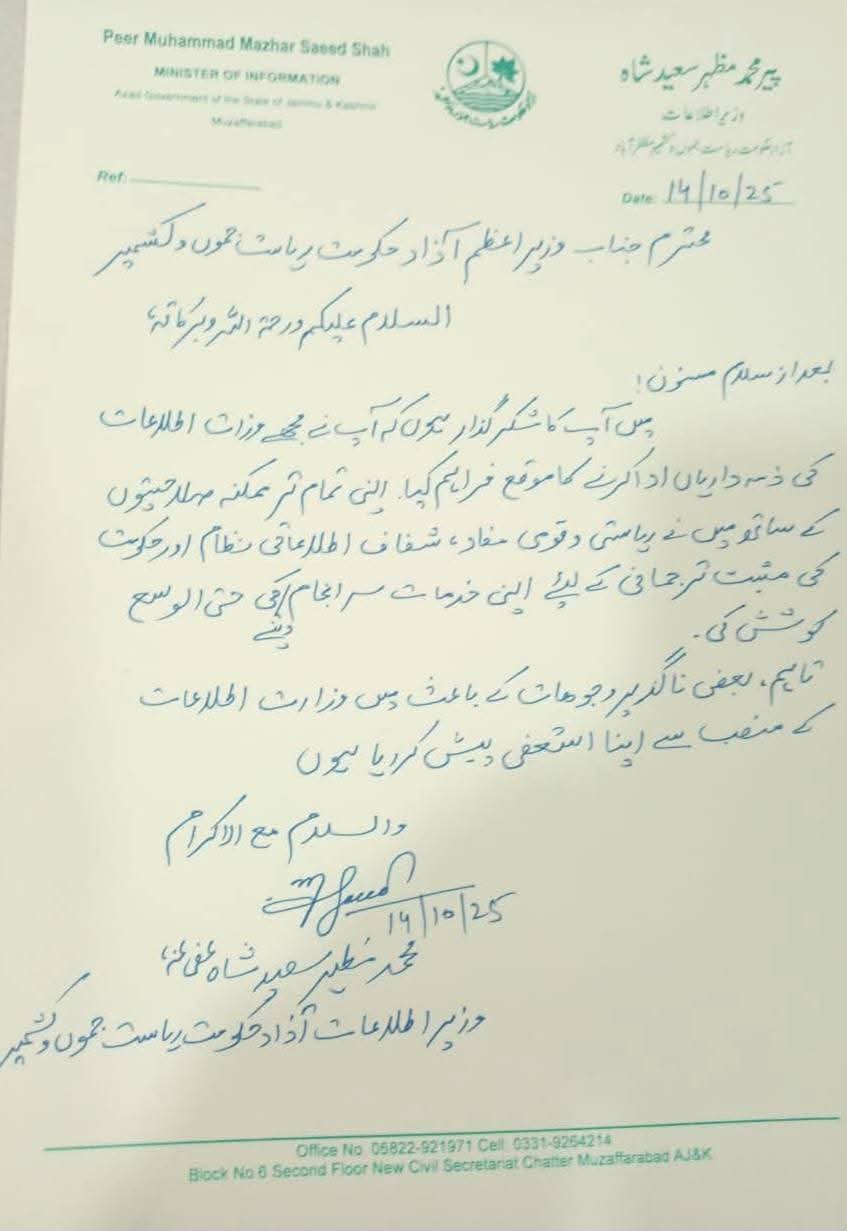 Peer Muhammad Mazhar Saeed Shah
MINISTER OF INFORMATION
Azad Government of the State of Jammu & Kashmir
Muzaffarabad
پیر محمد مظہر سعید شاہ
وزیر اطلاعات
آزاد حکومت ریاست جموں و کشمیر مظفر آباد
Ref:
Date: 14/10/25
محترم جناب وزیر اعظم آزاد حکومت ریاست جموں و کشمیر
السلام علیکم ورحمۃ اللہ وبرکاتہ،
بعد از سلام مسنون!
میں آپ کا شکر گذار ہوں کہ آپ نے مجھے وزرات اطلاعات
کی ذمہ داریاں ادا کرنے کا موقع فراہم کیا۔ اپنی تمام تر ممکنہ صلاحیتوں
کے ساتھ میں نے ریاستی و قومی مفاد، شفاف اطلاعاتی نظام اور حکومت
کی مثبت ترجمانی کے لیئے اپنی خدمات سر انجام دینے کی حتی الوسع
کوشش کی۔
تاہم، بعض ناگذیر وجوھات کے باعث میں وزارت اطلاعات
کے منصب سے اپنا استعفی پیش کر رہا ہوں
والسلام مع الاکرام
14/10/25
محمد مظہر سعید شاہ عفی عنہ،
وزیر اطلاعات آزاد حکومت ریاست جموں و کشمیر
Office No. 05822-921971 Cell: 0331-9264214
Block No 6 Second Floor New Civil Secretariat Chatter Muzaffarabad AJ&K